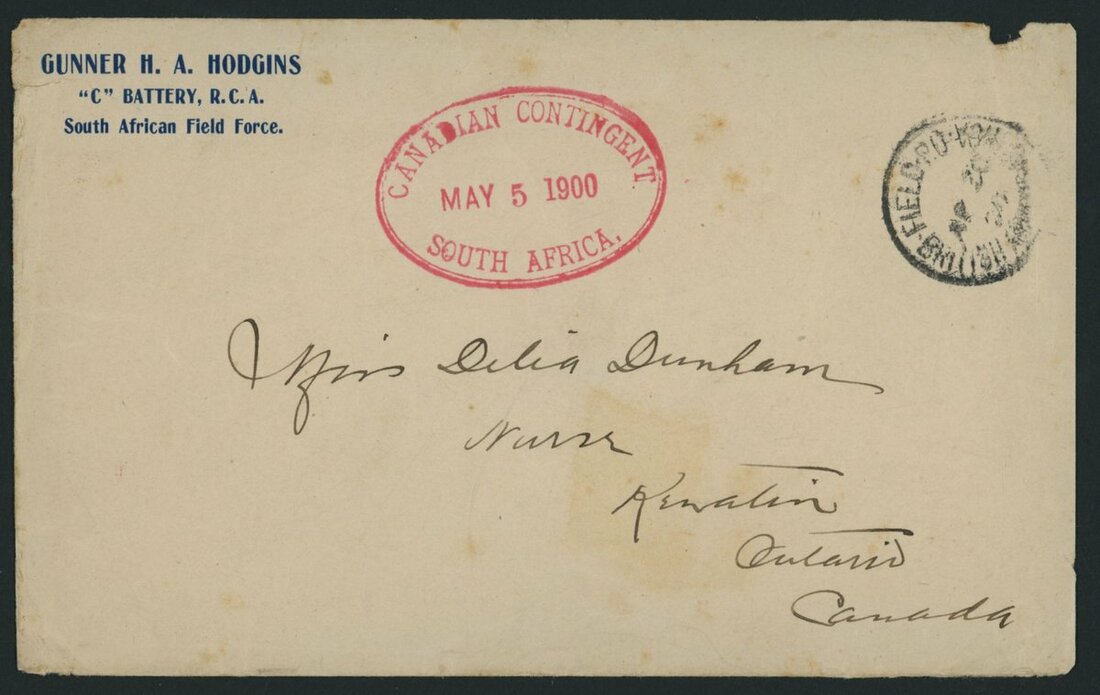 GUNNER H. A. HODGINS
"C" BATTERY, R.C.A.
South African Field Force.
CANADIAN CONTINGENT
MAY 5 1900
SOUTH AFRICA.
FIELD P.O
BRITISH
Miss Delia Dunham
Nurse
Kewatin
Ontario
Canada